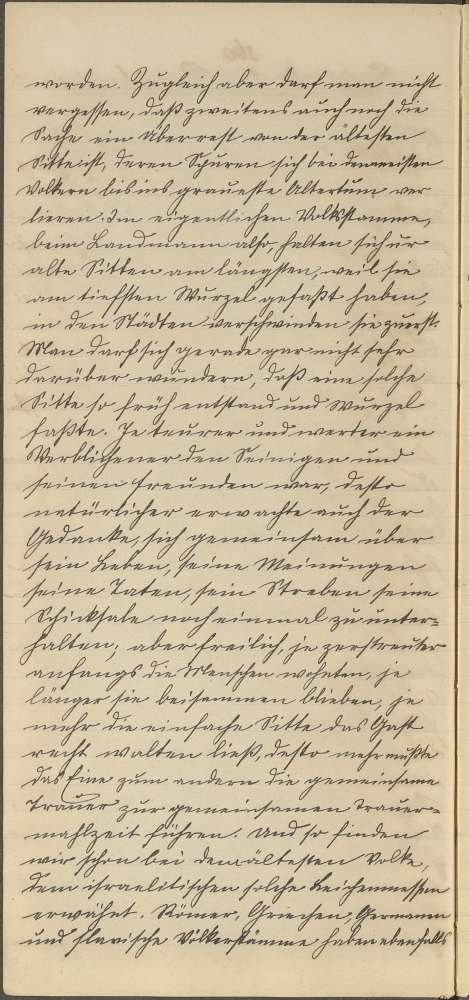 worden. Zugleich aber darf man nicht
vergessen, daß zweitens auch noch die
Sache ein Überrest von der ältesten
Sitte ist, deren Spuren sich bei den meisten
Völkern bis ins graueste Altertum ver
lieren. Im eigentlichen Volksstamme,
beim Landmann also, halten sich ur
alte Sitten am längsten, weil sie
am tiefsten Wurzel gefaßt haben,
in den Städten verschwinden sie zuerst.
Man darf sich gerade gar nicht sehr
darüber wundern, daß eine solche
Sitte so früh entstand und Wurzel
faßte. Je teurer und werter ein
Verblichener den Seinigen und
seinen Freunden war, desto
natürlicher erwachte auch der
Gedanke, sich gemeinsam über
sein Leben, seine Meinungen
seine Taten, sein Streben seine
Schicksale noch einmal zu unter=
halten; aber freilich, je zerstreuter
anfangs die Menschen wohnten, je
länger sie beisammen blieben, je
mehr die einfache Sitte das Gast
recht walten ließ, desto mehr mußte
das Eine zum andern die gemeinsame
Trauer zur gemeinsamen Trauer=
mahlzeit führen. Und so finden
wir schon bei dem ältesten Volke,
dem israelitischen solche Leichenmessen
erwähnt. Römer, Griechen, Germanen
und slavische Völkerstämme haben ebenfalls